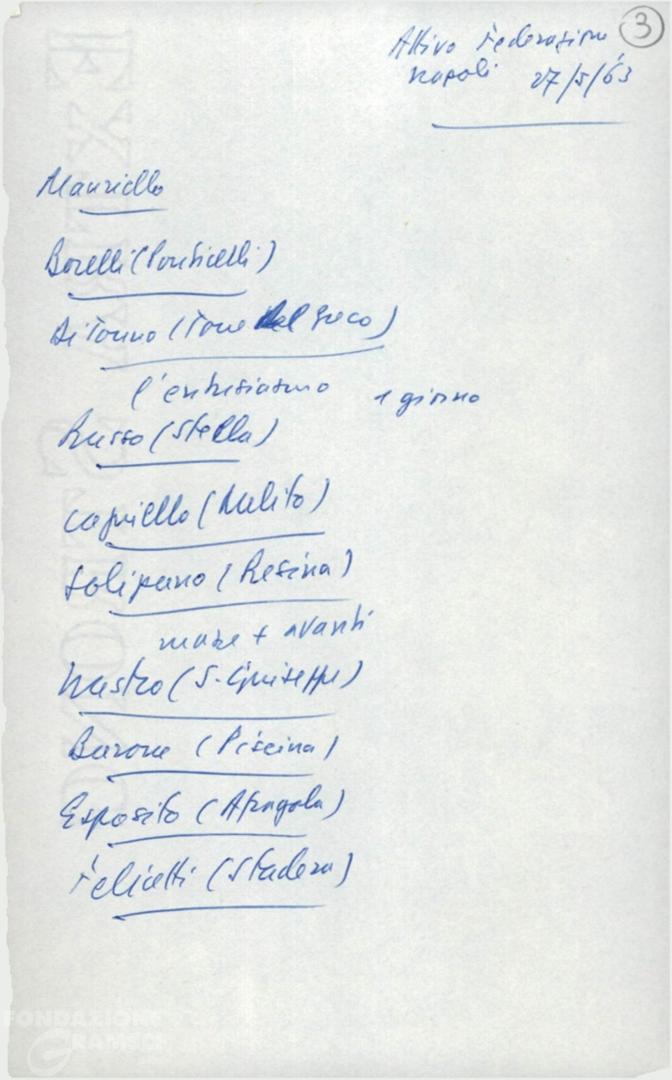 3
Attivo Federazione
Napoli 27/5/63
Mauriello
Borelli (Ponticelli)
Di Tonno (Torre del Greco)
l'entusiasmo 1 giorno
Russo (Stella)
Capriello (Melito)
Solipano (Resina)
mare + avanti
Nastro (S. Giuseppe)
Barone (Piscina)
Esposito (Afragola)
Felicetti (Stadera)
FONDAZIONE
GRAMSCI